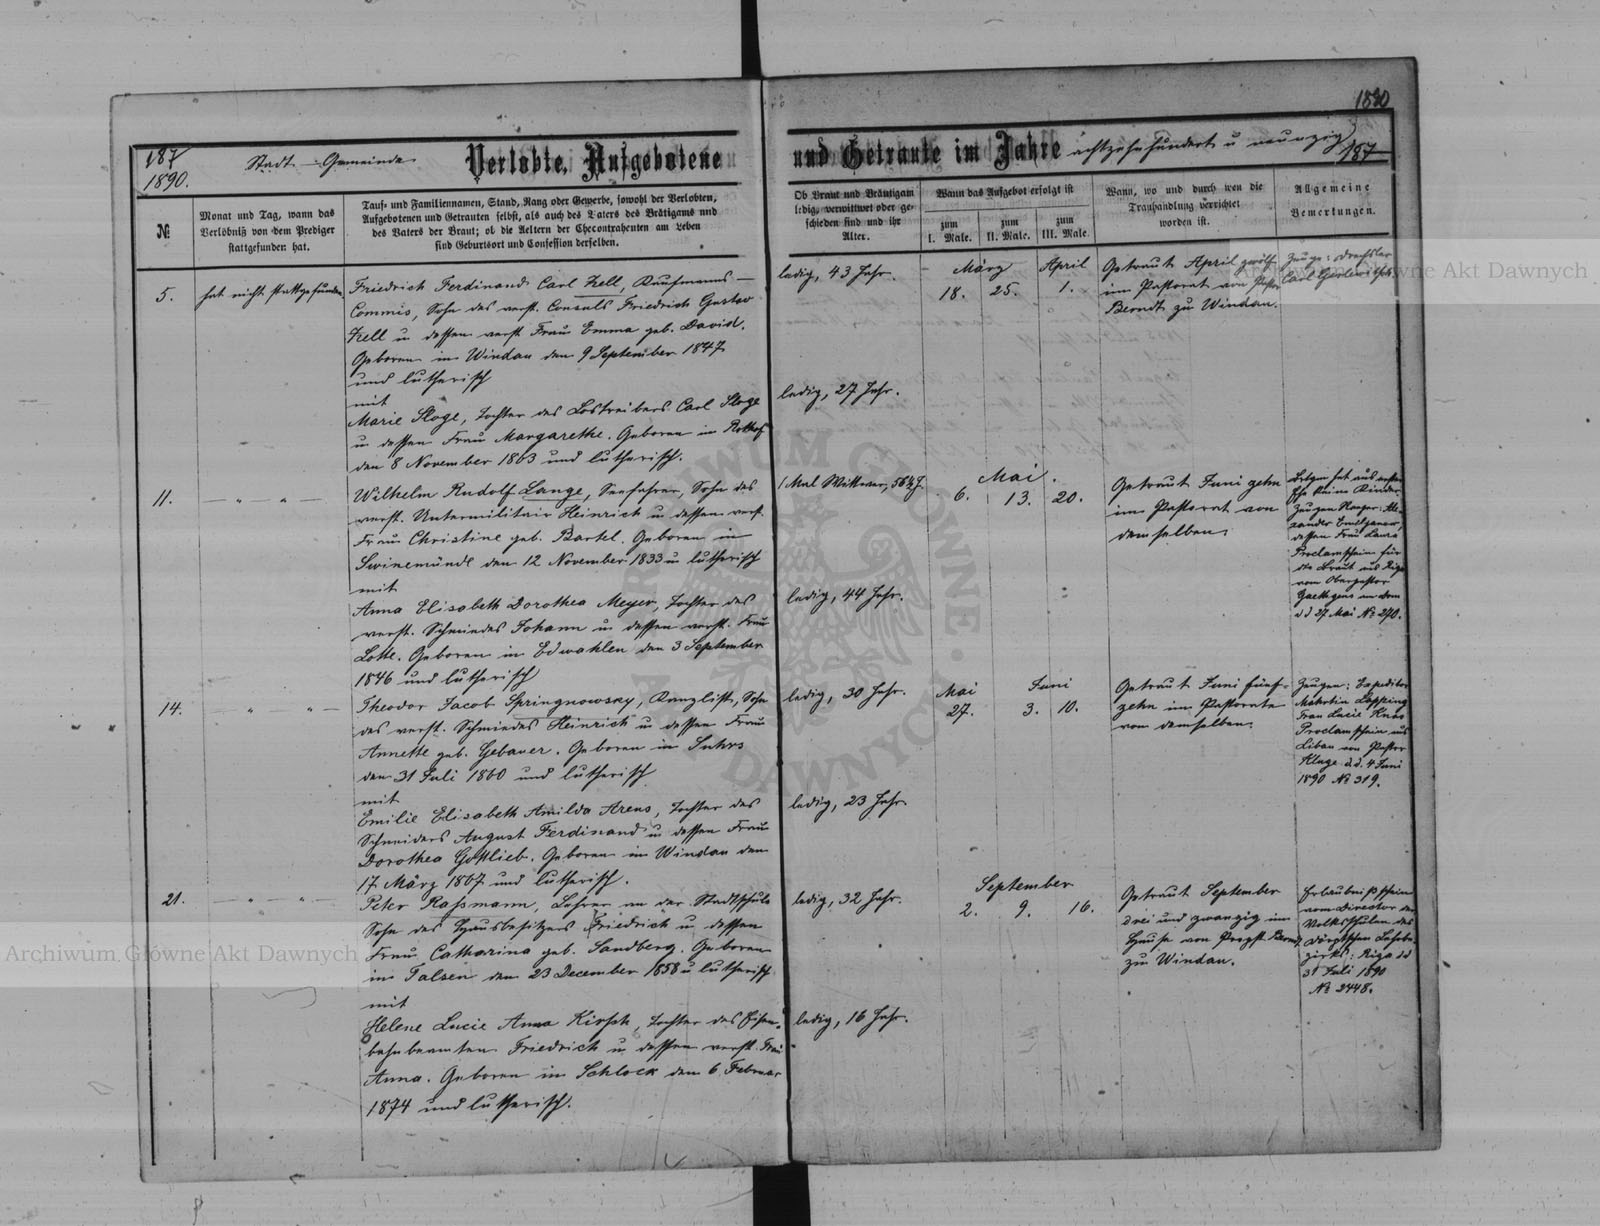 1890
187
1890.
Stadt - Gemeinde
Verlobte, Aufgebotene
und Getraute im Jahre achtzehnhundert u neunzig
187
№
Monat und Tag, wann das
Verlöbniß von dem Prediger
stattgefunden hat.
Tauf- und Familiennamen, Stand, Rang oder Gewerbe, sowohl der Verlobten,
Aufgebotenen und Getrauten selbst, als auch des Vaters des Bräutigams und
des Vaters der Braut; ob die Aeltern der Ehecontrahenten am Leben
sind Geburtsort und Confession derselben.
Ob Braut und Bräutigam
ledig, verwittwet oder ge-
schieden sind und ihr
Alter.
Wann das Aufgebot erfolgt ist
zum
I. Male.
zum
II. Male.
zum
III. Male.
Wann, wo und durch wen die
Trauhandlung verrichtet
worden ist.
Allgemeine
Bemerkungen.
5.
hat nicht stattgefunden
Friedrich Ferdinand Carl Zell, Kaufmanns-
Commis, Sohn des verst. Consuls Friedrich Gustav
Zell u dessen verst Frau Emma geb. David.
Geboren in Windau den 9 September 1847
und lutherisch
mit
Marie Sloge, Tochter des Lostreibers Carl Sloge
u dessen Frau Margarethe. Geboren in Rothof
den 8 November 1863 und lutherisch.
ledig, 43 Jahr.
ledig, 27 Jahr.
März April
18. 25. 1.
Getraut April zwölf
im Pastorat von Pastor
Berndt zu Windau.
Zeuge: Drechsler
Carl
11.
— „ — „ —
Wilhelm Rudolf Lange, Seefahrer, Sohn des
verst. Untermilitair Heinrich u dessen verst.
Frau Christine geb. Bartel. Geboren in
Swinemünde den 12 November 1833 u lutherisch
mit
Anna Elisabeth Dorothea Meyer, Tochter des
verst. Schmiedes Johann u dessen verst. Frau
Lotte. Geboren in Edwahlen den 3 September
1846 und lutherisch
1 Mal Wittwer, 56½ J.
ledig, 44 Jahr.
Mai.
6. 13. 20.
Getraut Juni zehn
im Pastorat von
demselben.
hat aus erster
Ehe keine Kinder.
Zeugen
dessen Frau Laura
Proclamschein für
die Braut aus Riga
vom Oberpastor
Gaehtgens am Dom
d d 27 Mai № 270.
14.
— „ „ —
Theodor Jacob Springnowsky, Kanzlist, Sohn
des verst. Schmiedes Heinrich u dessen Frau
Annette geb. Gebauer. Geboren in Suhrs
den 31 Juli 1860 und lutherisch
mit
Emilie Elisabeth Amilda Arens, Tochter des
Schneiders August Ferdinand u dessen Frau
Dorothea Gottlieb. Geboren in Windau den
17 März 1867 und lutherisch.
ledig, 30 Jahr.
ledig, 23 Jahr.
Mai Juni
27. 3. 10.
Getraut Juni fünf-
zehn im Pastorate
von demselben.
Zeugen: Expeditor
Frau Lucie
Proclamschein aus
Libau von Pastor
Kluge d.d. 4 Juni
1890 № 319.
21.
— „ — „ —
Peter Raßmann, Lehrer an der Stadtschule
Sohn des Hausbesitzers Friedrich u dessen
Frau Catharina geb. Sandberg. Geboren
in Talsen den 23 December 1858 u lutherisch
mit
Helene Lucie Anna Kirsch, Tochter des Eisen-
bahnbeamten Friedrich u dessen verst. Frau
Anna. Geboren in Schlock den 6 Februar
1874 und lutherisch.
ledig, 32 Jahr.
ledig, 16 Jahr.
September
2. 9. 16.
Getraut September
drei und zwanzig im
Hause von Propst Berndt
zu Windau.
Erlaubnißschein
vom Director der
Volksschulen des
Dörptschen Lehrbe-
zirks: Riga d d
31 Juli 1890
№ 2448.
Archiwum Główne Akt Dawnych
Archiwum Główne Akt Dawnych
ARCHIWUM GŁÓWNE · AKT DAWNYCH